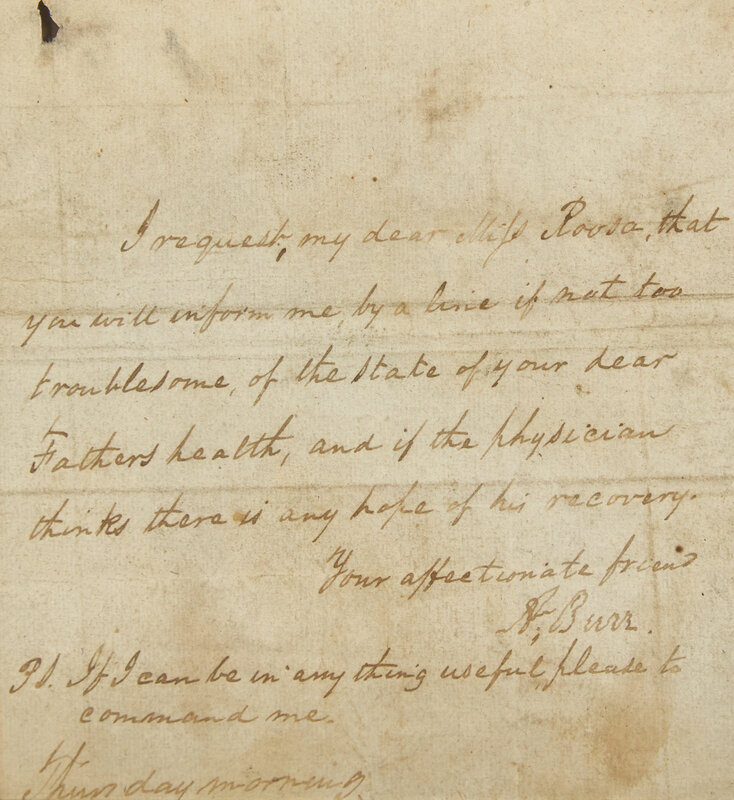 I request, my dear Miss Roosa, that
you will inform me by a line if not too
troublesome, of the state of your dear
Fathers health, and if the physician
thinks there is any hope of his recovery.
Your affectionate friend
Ar, Burr.
PS. If I can be in any thing useful, please to
command me.
Thursday morning